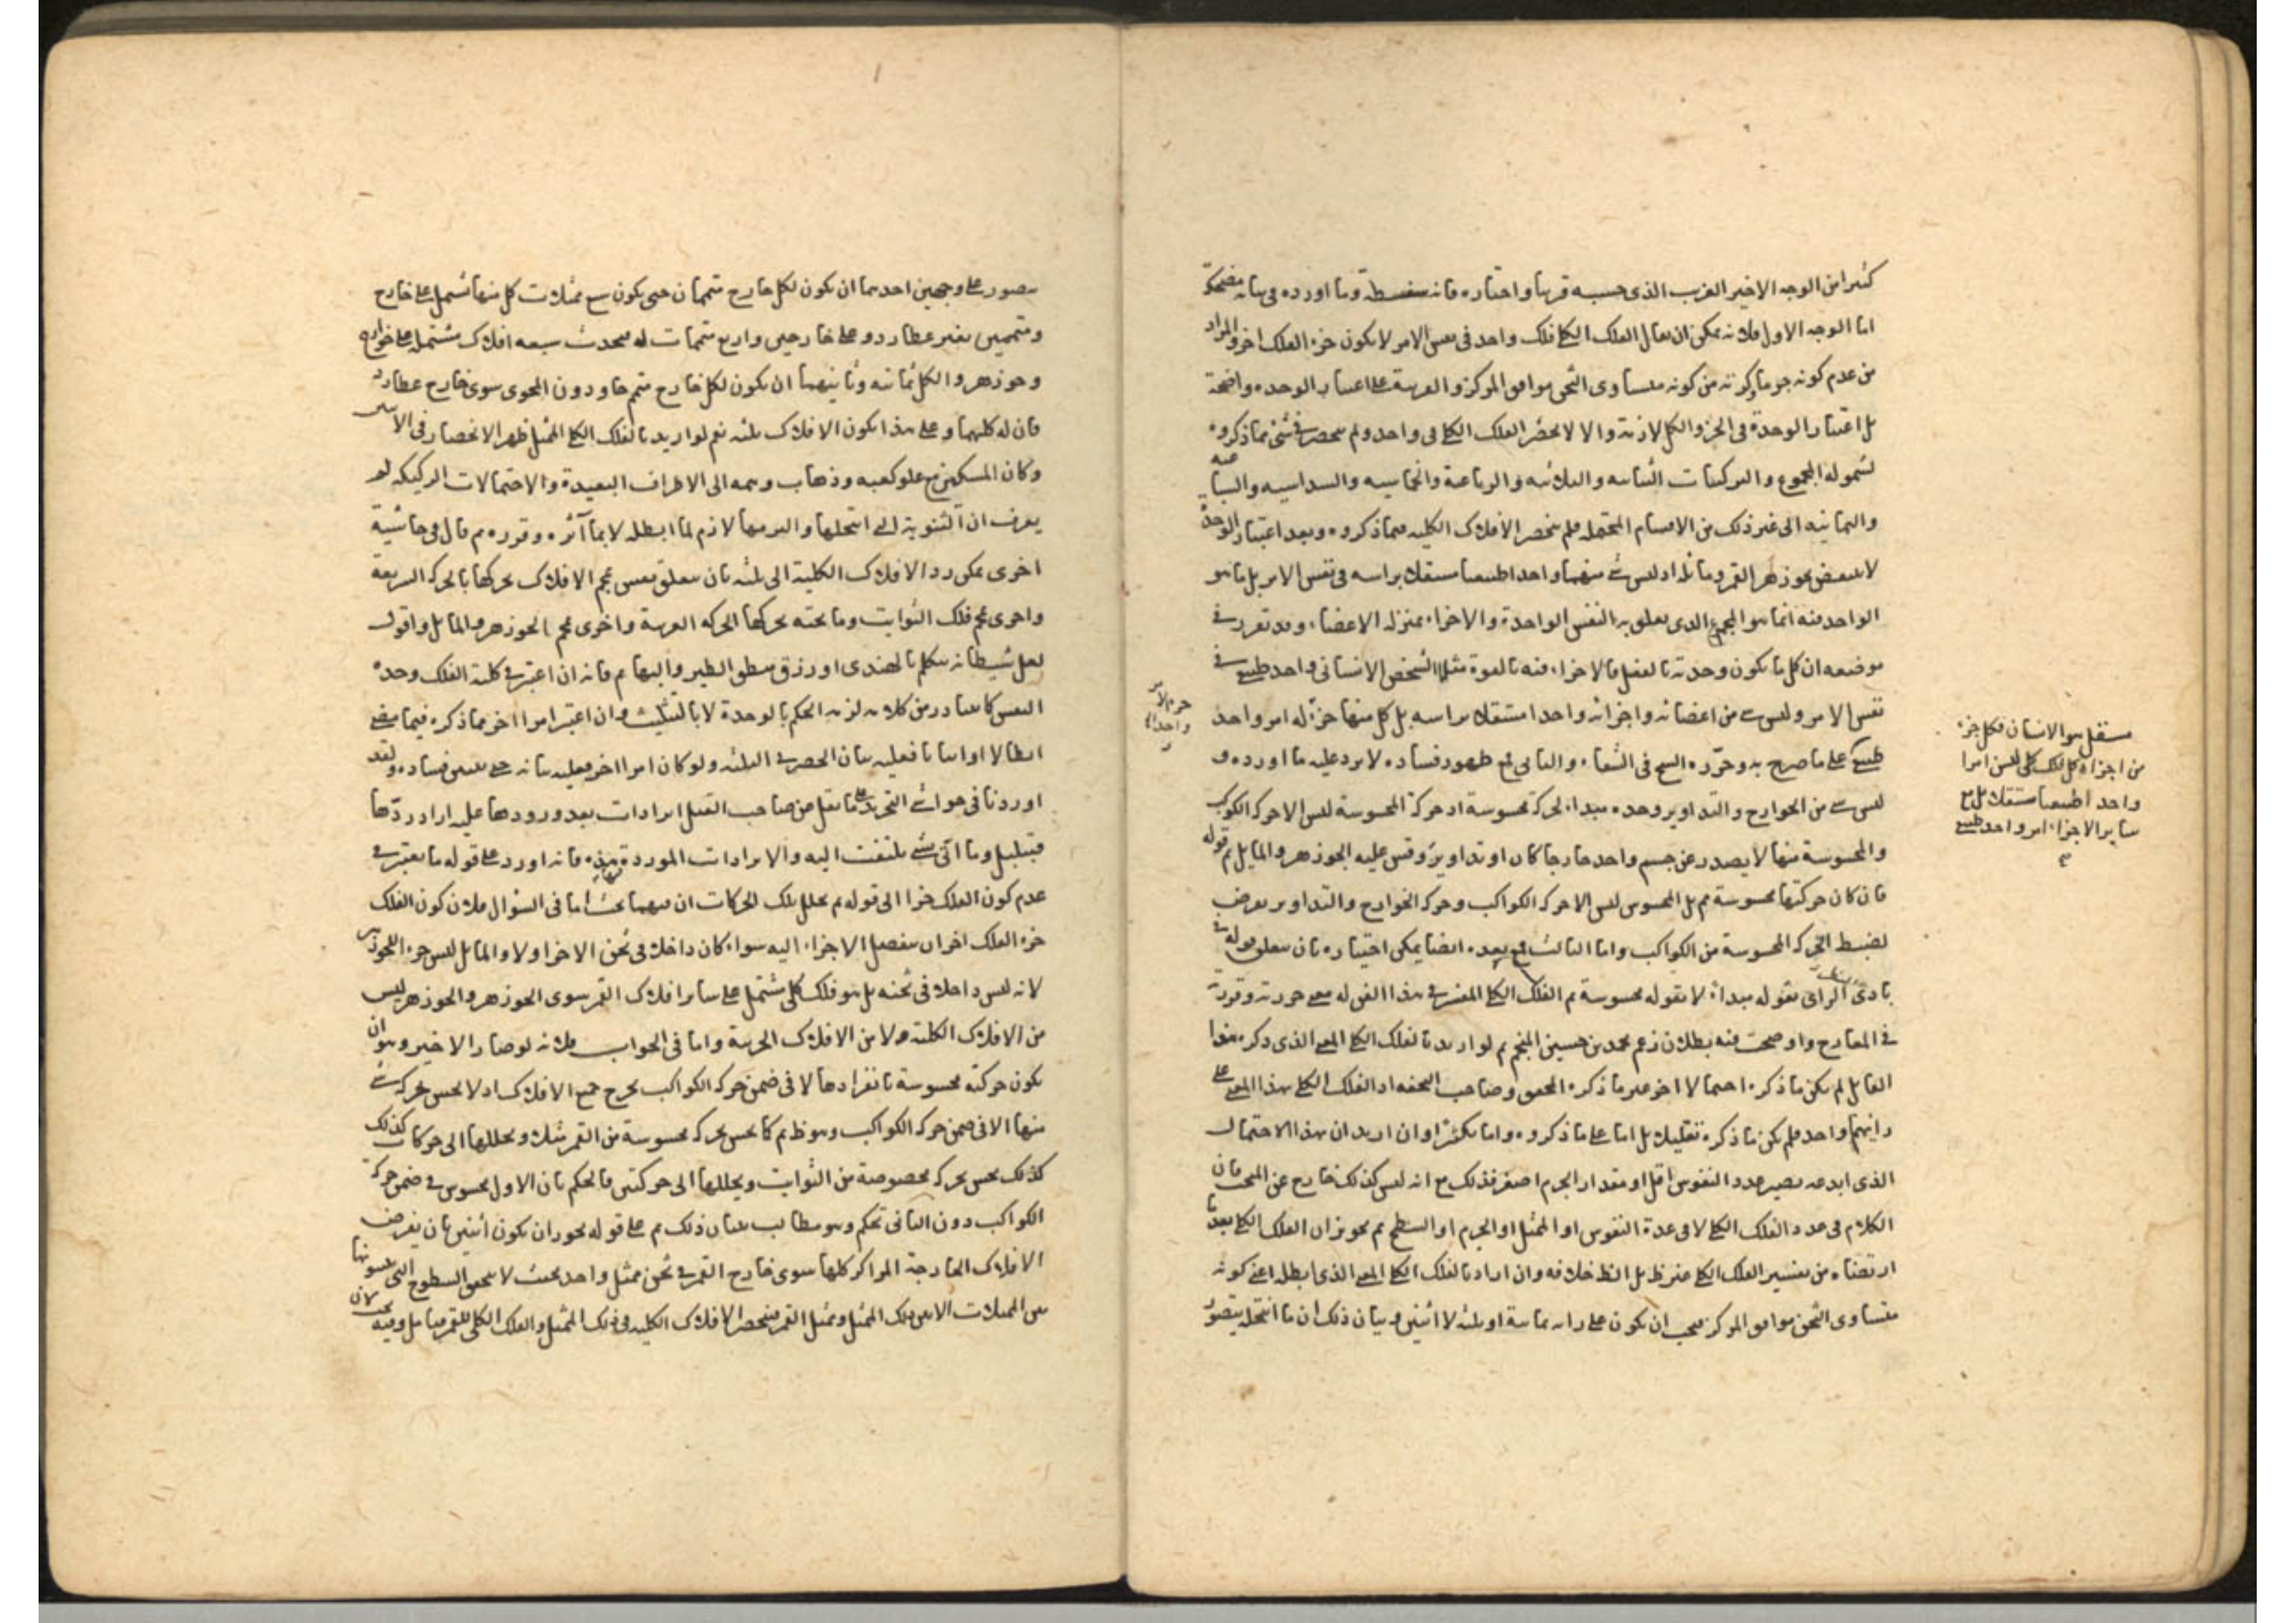 كثيرا من الوجه الاخير الغريب الذى حسبه قريبا واختاره فانه سفسطة وما اورده فى بيانه مضحكة
اما الوجه الاول فلانه يمكن ان يقال الفلك الكلى فلك واحد فى نفس الامر لا يكون جزء الفلك اخر والمراد
من عدم كونه جزءا من كونه متساوى الثخن موافق المركز والقرينة على اعتبار الوحدة واضحة
بل اعتبار الوحدة فى الجزء والكل لازمة والا لا نحصر الفلك الكلى فى واحد ولم ينحصر فى شئ مما ذكروه
لشموله المجموع والتركيبات الثنائية والثلاثية والرباعية والخماسية والسداسية والسباعية
والثمانية الى غير ذلك من الاقسام المحتملة فلم ينحصر الافلاك الكلية فيما ذكروه وبعد اعتبار الوحدة
لا ينتقض بجوزهر القمر ومائله اذ ليس شئ منهما واحدا طبيعيا مستقلا براسه فى نفس الامر بل ما هو
الواحد منه انما هو المجموع الذى يتعلق به النفس الواحدة والاجزاء بمنزلة الاعضاء وقد تقرر فى
موضعه ان كل ما يكون وحدته بالفعل فالاجزاء فيه بالقوة مثلا الشخص الانسانى واحد طبيعى فى
نفس الامر وليس شئ من اعضائه واجزائه واحدا مستقلا براسه بل كل منها جزء له امر واحد
طبيعى على ما صرح به وحرره الشيخ فى الشفاء والثانى مع ظهور فساده لا يرد عليه ما اورده و
ليس شئ من الخوارج والتداوير وحده مبداء لحركة محسوسة اذ حركة المحسوسة ليس الا حركة الكوكب
والمحسوسة منها لا يصدر عن جسم واحد خارجا كان او تداوير وقس عليه الجوزهر والمايل ثم قوله
فان كان حركتها محسوسة ثم بل المحسوس ليس الا حركة الكواكب وحركة الخوارج والتداوير يفرض
لضبط الحركة المحسوسة من الكواكب واما الثالث فمع بعده ايضا يمكن اختياره بان يتعلق قوله فى
بادى الراى بقوله مبداء لا بقوله محسوسة ثم الفلك الكلى المفسر فى هذا القول له معنى حررته وقررته
فى المعارج واوضحت فيه بطلان زعم محمد بن حسين المنجم ثم لو اريد بالفلك الكلى المعنى الذى ذكره هذا
القايل لم يكن ما ذكره احتمالا اخر غير ما ذكره المحقق وصاحب التحفة اذ الفلك الكلى بهذا المعنى على
رايهم واحد فلم يكن ما ذكره تقليلا بل اما على ما ذكروه واما تكثيرا وان اريد ان هذا الاحتمال
الذى ابدعه يصير عدد النفوس اقل او مقدار الجرم اصغر فذلك مع انه ليس كذلك خارج عن المبحث فان
الكلام فى عدد الفلك الكلى لا فى عدة النفوس او الممثل او الجرم او السطح ثم تجويز ان الفلك الكلى بعد ما
ارتضاه من تفسير الفلك الكلى غير ظ بل الظ خلافه وان اراد بالفلك الكلى المعنى الذى ابطله اعنى كونه
متساوى الثخن موافق المركز فيجب ان يكون على رايه ثمانية او ثلثة لا اثنين وبيان ذلك ان ما انتحله يتصور
جزء لامر
واحد
مستقل هو الانسان فكل جزء
من اجزاء كل فلك كلى ليس امرا
واحدا طبيعيا مستقلا بل مع
سائر الاجزاء امر واحد طبيعى
يتصور على وجهين احدهما ان يكون لكل خارج متممان حتى يكون سبع ممثلات كل منها تشمل على خارج
ومتممين بغير عطارد وعلى خارجين واربع متممات له فيحدث سبعه افلاك مشتملة على خوارج
وجوزهر والكل ثمانيه وثانيهما ان يكون لكل خارج متمم حاو دون المحوى سوى خارج عطارد
فان له كليهما وعلى هذا يكون الافلاك ثلثه نعم لو اريد بالفلك الكلى الممثل ظهر الانحصار فى الاثنين
وكان المسكين مع علو كعبه وذهاب وهمه الى الاطراف البعيدة والاحتمالات الركيكه لم
يعرف ان الثنوية التى انتحلها والتزمها لازم لما ابطله لا بما آثره وقرره ثم قال فى حاشية
اخرى يمكن رد الافلاك الكلية الى ثلثه بان يتعلق نفس بجميع الافلاك يحركها بالحركة السريعة
واخرى بجميع فلك الثوابت وما تحته يحركها الحركة الغربية واخرى بجميع الجوزهر والمايل واقول
لعل شيطانه يتكلم بالهندى او رزق منطق الطير والبهايم فانه ان اعتبر فى كلية الفلك وحدة
النفس كما يتبادر من كلامه لزمه الحكم بالوحدة لا بالتثليث وان اعتبر امرا اخر مما ذكره فيما مضى
ابطالا او اثباتا فعليه بيان الحصر فى الثلثه ولو كان امرا اخر فعليه بيانه حتى يتبين فساده ولقد
اوردنا فى حواشى التجريد على ما نقل من صاحب القيل ايرادات بعد ورودها عليه اراد ردها
فتبلبل وما اتى بشئ يلتفت اليه والايرادات الموردة هذه فانه اورد على قوله ما يعتبر فى
عدم كون الفلك جزءا الى قوله ثم تحلل تلك الحركات ان فيهما بحثا اما فى السؤال فلان كون الفلك
جزء الفلك اخر ان ينفصل الاجزاء اليه سواء كان داخلا فى ثخن الاخر او لا والمايل ليس جزء الجوزهر
لانه ليس داخلا فى ثخنه بل هو فلك كلى مشتمل على ساير افلاك القمر سوى الجوزهر والجوزهر ليس
من الافلاك الكلية ولا من الافلاك الجزئية واما فى الجواب فلانه لو صار الاخير وهو ان
يكون حركته محسوسة بانفرادها لا فى ضمن حركة الكواكب يخرج جميع الافلاك اذ لا يحس بحركة شئ
منها الا فى ضمن حركة الكواكب وهو ظ ثم كما يحس بحركة محسوسة من القمر مثلا ويحللها الى حركات كذلك
كذلك يحس بحركة مخصوصة من الثوابت ويحللها الى حركتين فالحكم بان الاول محسوس فى ضمن حركة
الكواكب دون الثانى تحكم وهو مطالب ببيان ذلك ثم على قوله يجوز ان يكون اثنين بان يفرض
الافلاك الخارجة المراكز كلها سوى خارج القمر فى ثخن ممثل واحد بحيث لا يتحقق السطوح التى
بين الممثلات الا بين ذلك الممثل وممثل القمر فينحصر الافلاك الكلية فى ذلك الممثل والفلك الكلى للقمر فتامل وفيه بحث لان